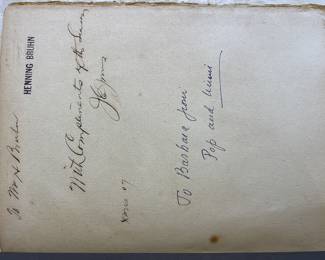 HENNING BRUHN
To Mr A Bruhn
With Compliments of the
Xmas 07
To Barbara from
Pop and Mimi